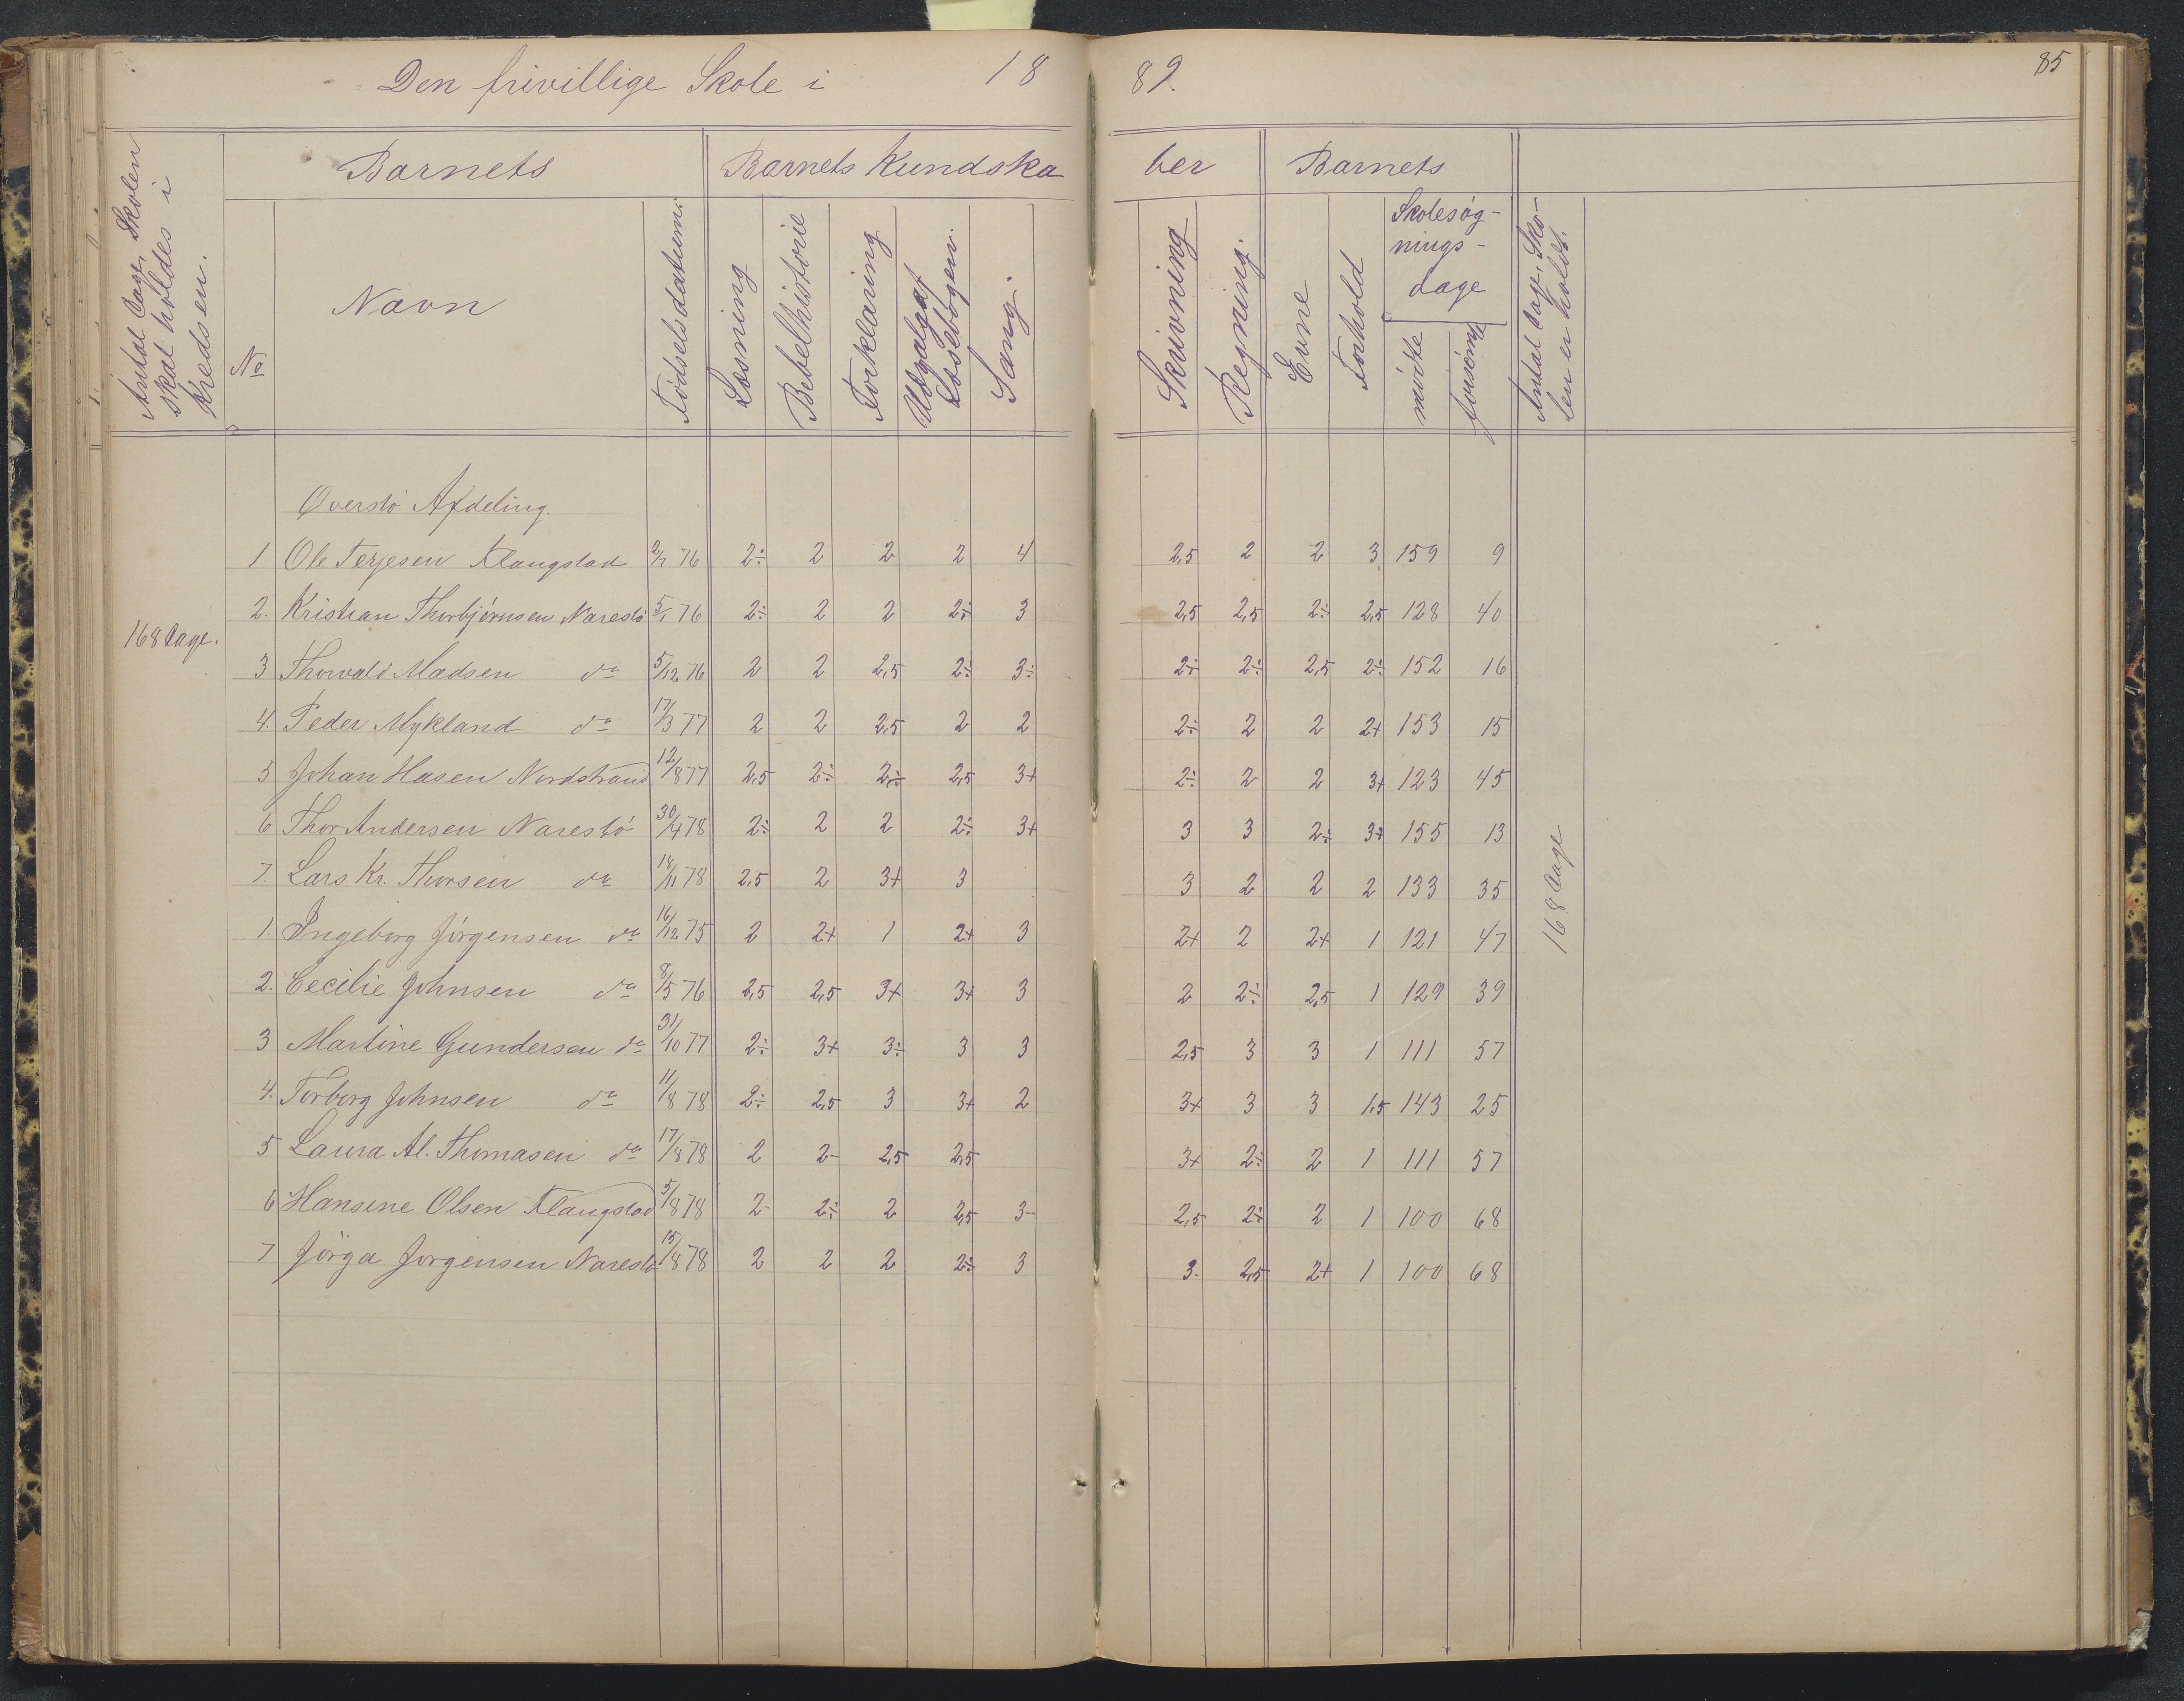 Den frivillige Skole i 1889.
85
Antal Dage, Skolen skal holdes i Kredsen.
Barnets
Barnets Kundskaber
Barnets
No
Navn
Fødselsdatum:
Læsning
Bibelhistorie
Forklaring
Udvalg af Læsebogen.
Sang.
Skrivning
Regning.
Evne
Forhold
Skolesøgnings-dage
mödte
forsömte
Antal Dage, Skolen er holdt.
Överstö Afdeling.
1 Ole Terjesen Klaugstad 2/7 76 2÷ 2 2 2 4 2,5 2 2 3 159 9
2. Kristian Thorbjörnsen Narestö 5/1 76 2÷ 2 2 2÷ 3 2,5 2,5 2÷ 2,5 128 40
168 Dage.
3 Thorvald Madsen do 5/12 76 2 2 2,5 2÷ 3÷ 2÷ 2÷ 2,5 2÷ 152 16
4. Peder Mykland do 17/3 77 2 2 2,5 2 2 2÷ 2 2 2+ 153 15
5 Johan Hasen Nordstrand 12/8 77 2,5 2÷ 2÷ 2,5 3+ 2÷ 2 2 3+ 123 45
6 Thor Andersen Narestö 30/4 78 2÷ 2 2 2÷ 3+ 3 3 2÷ 3+ 155 13
7. Lars Kr. Thorsen do 18/11 78 2,5 2 3+ 3 3 2 2 2 133 35
1. Ingeborg Jörgensen do 16/12 75 2 2+ 1 2+ 3 2+ 2 2+ 1 121 47
168 Dage
2. Cecilie Johnsen do 8/5 76 2,5 2,5 3+ 3+ 3 2 2÷ 2,5 1 129 39
3 Martine Gundersen do 31/10 77 2÷ 3+ 3÷ 3 3 2,5 3 3 1 111 57
4. Torborg Johnsen do 11/8 78 2÷ 2,5 3 3+ 2 3+ 3 3 1,5 143 25
5 Laura Al. Thomasen do 17/8 78 2 2- 2,5 2,5 3+ 2÷ 2 1 111 57
6 Hansine Olsen Klaugstad 5/8 78 2- 2÷ 2 2,5 3- 2,5 2÷ 2 1 100 68
7 Jörga Jorgensen Narestö 15/8 78 2 2 2 2÷ 3 3. 2,5 2+ 1 100 68